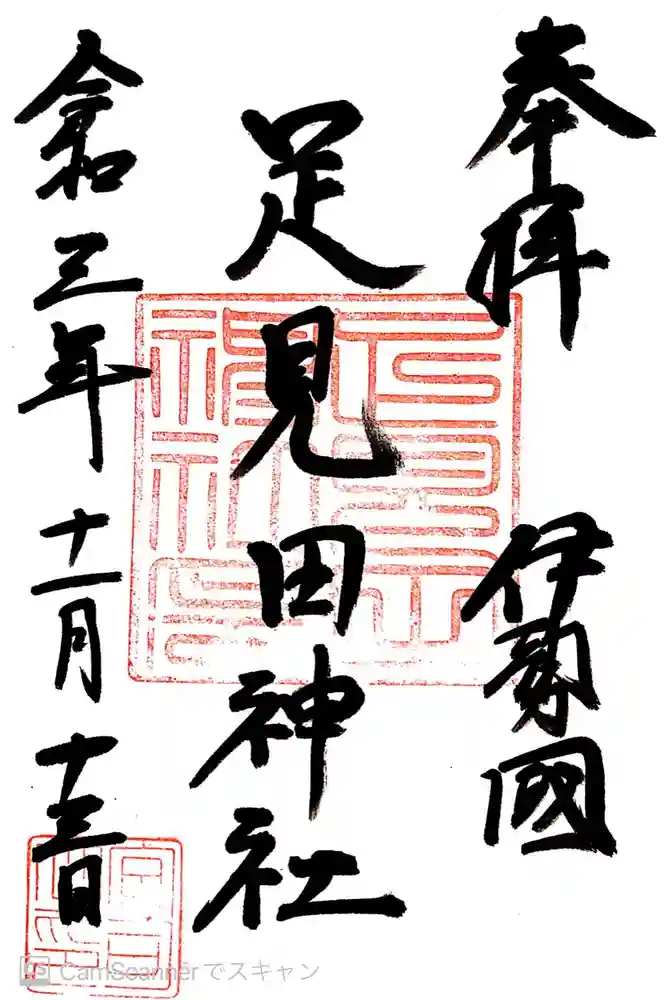 奉拝
伊勢國
足見田神社
令和三年十一月十三日
CamScannerでスキャン